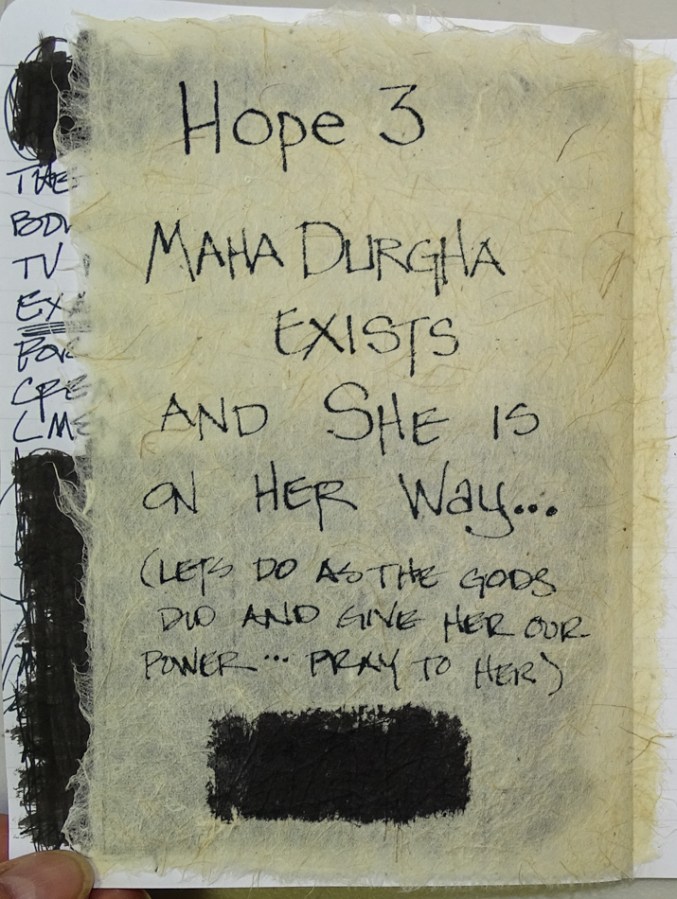 Hope 3
MAHA DURGHA
EXISTS
AND SHE IS
ON HER Way...
(LETS DO AS THE GODS
DID AND GIVE HER OUR
POWER... PRAY TO HER)
THE
TV
EX
FOR
CREA